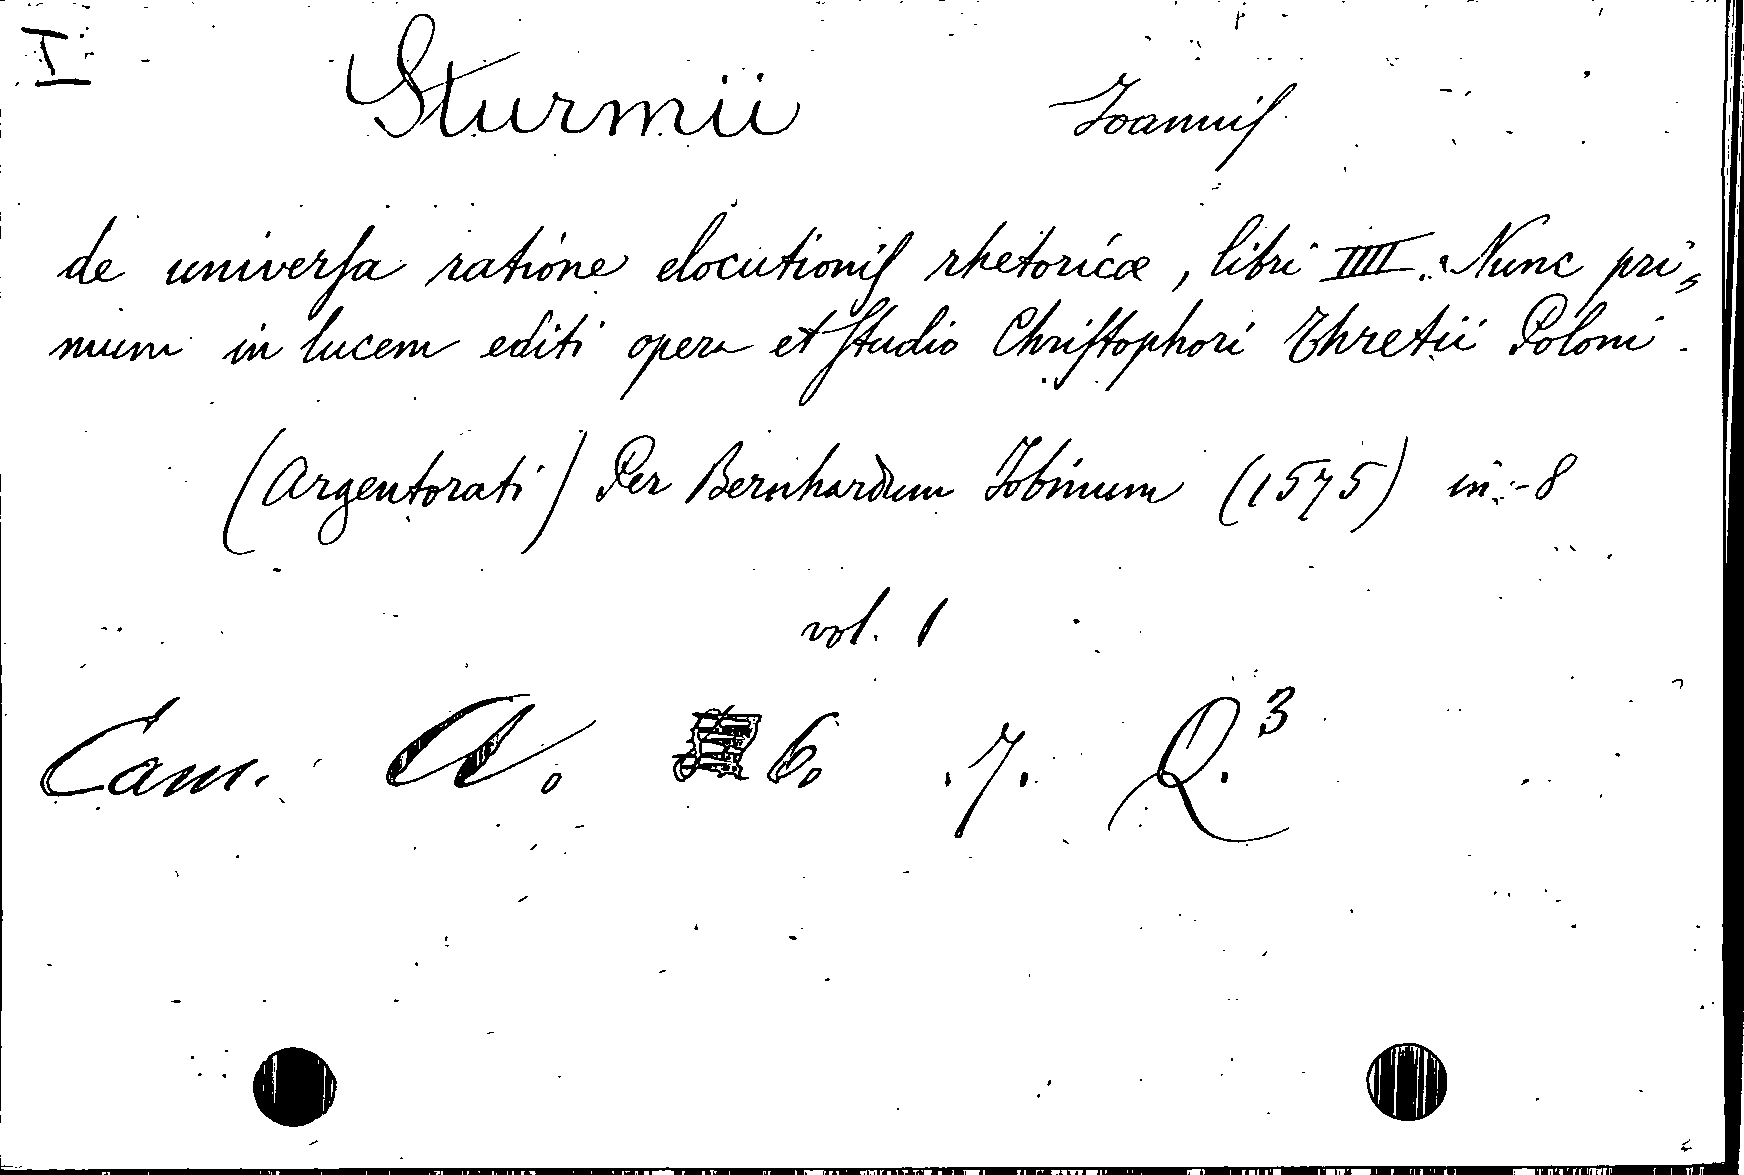 I
Sturmii Joannis
de universa ratione elocutionis rhetoricæ, libri IIII. Nunc pri=
mum in lucem editi opera et studio Christophori Thretii Poloni.
(Argentorati) Per Bernhardum Jobinum (1575) in-8
vol. 1
Cam. A. 6. .7. Q.3